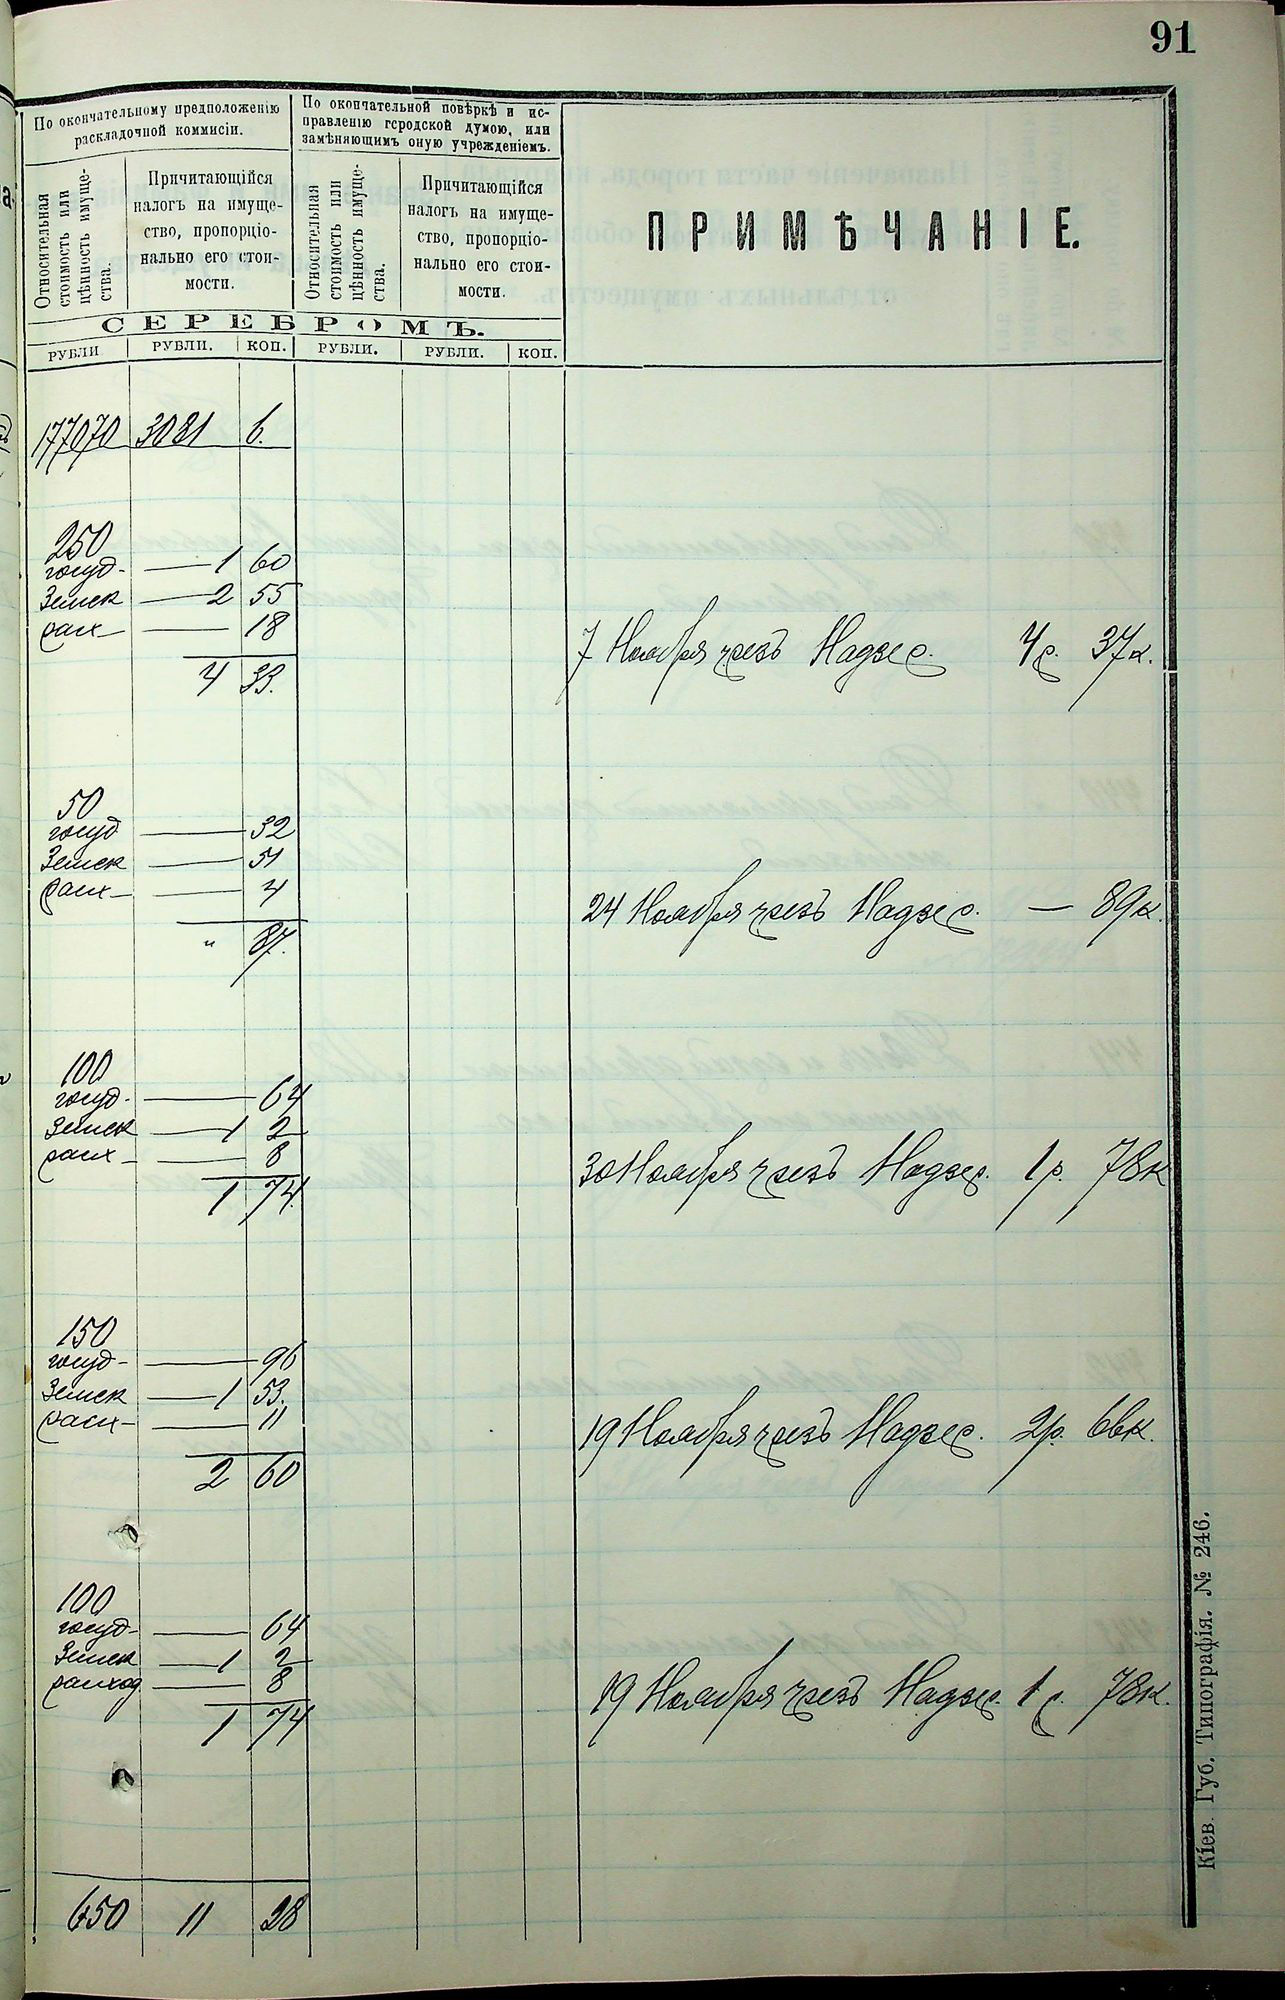 91
По окончательному предположенію
раскладочной коммисіи.
По окончательной повѣркѣ и ис-
правленію городской думою, или
замѣняющимъ оную учрежденіемъ.
Относительная
стоимость или
цѣнность имуще-
ства.
Причитающійся
налогъ на имуще-
ство, пропорціо-
нально его стои-
мости.
Относительная
стоимость или
цѣнность имуще-
ства.
Причитающійся
налогъ на имуще-
ство, пропорціо-
нально его стои-
мости.
ПРИМѢЧАНІЕ.
СЕРЕБРОМЪ.
РУБЛИ РУБЛИ. КОП. РУБЛИ. РУБЛИ. КОП.
177070 3081 6.
250
госуд- — 1 60
Земск — 2 55
расх — 18
4 33.
7 Ноября чрезъ Надзер. 4 р. 37 к.
50
госуд — 32
Земск — 51
расх — 4
" 87.
24 Ноября чрезъ Надзер. — 89 к.
100
госуд- — 64
Земск — 1 2
расх — 8
1 74.
30 Ноября чрезъ Надзер. 1 р. 78 к
150
госуд- — 96
Земск — 1 53.
расх — 11
2 60
19 Ноября чрезъ Надзер. 2 р. 66 к.
100
госуд- — 64
Земск — 1 2
расход — 8
1 74
19 Ноября чрезъ Надзер. 1 р. 78 к.
650 11 28
Кіев. Губ. Типографія. № 246.